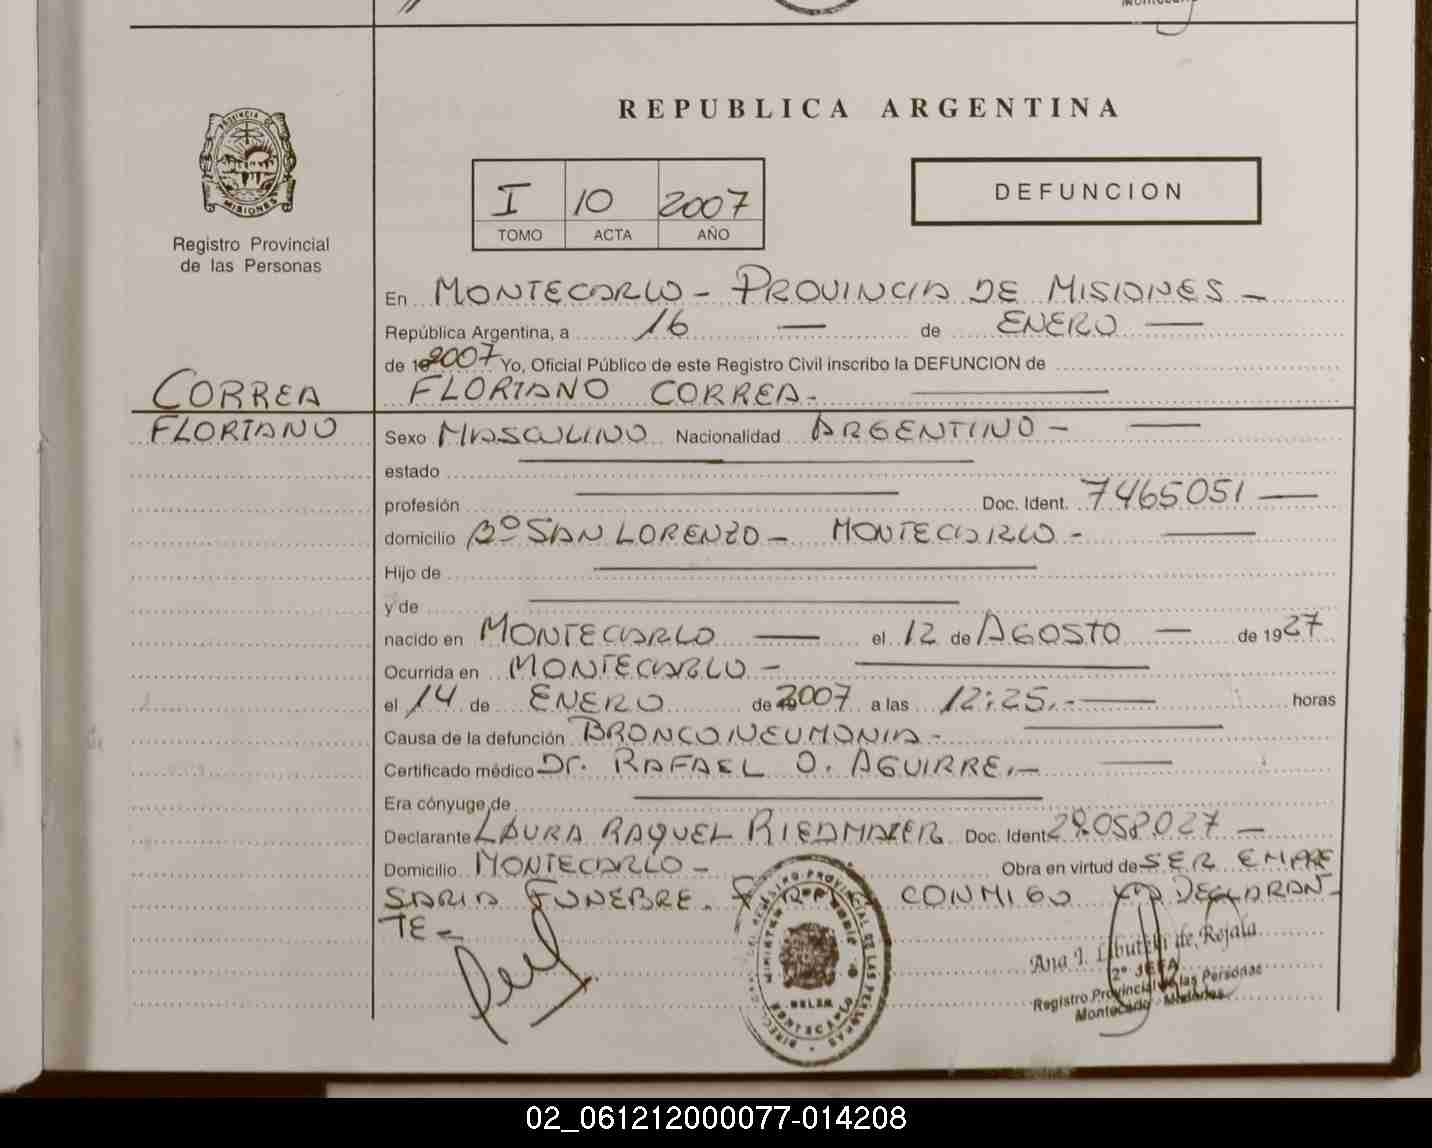 REPUBLICA ARGENTINA
PROVINCIA DE
MISIONES
Registro Provincial
de las Personas
I 10 2007
TOMO ACTA AÑO
DEFUNCION
En MONTECARLO - PROVINCIA DE MISIONES -
República Argentina, a 16 — de ENERO —
de 2007 Yo, Oficial Público de este Registro Civil inscribo la DEFUNCION de
FLORIANO CORREA.
CORREA
FLORIANO
Sexo MASCULINO Nacionalidad ARGENTINO -
estado
profesión Doc. Ident. 7465051 —
domicilio Bº SAN LORENZO - MONTECARLO -
Hijo de
y de
nacido en MONTECARLO — el 12 de AGOSTO — de 1927
Ocurrida en MONTECARLO -
el 14 de ENERO de 2007 a las 12:25.- horas
Causa de la defunción BRONCONEUMONIA -
Certificado médico Dr. RAFAEL O. AGUIRRE.-
Era cónyuge de
Declarante LAURA RAQUEL RIEDMAIER Doc. Ident 28.058.027 —
Domicilio MONTECARLO - Obra en virtud de SER EMPRE
SARIA FUNEBRE. CONMIGO DECLARAN-
TE -
Ana I. de Rejala
2º JEFA
Registro Provincial de las Personas
Montecarlo - Misiones
02_061212000077-014208